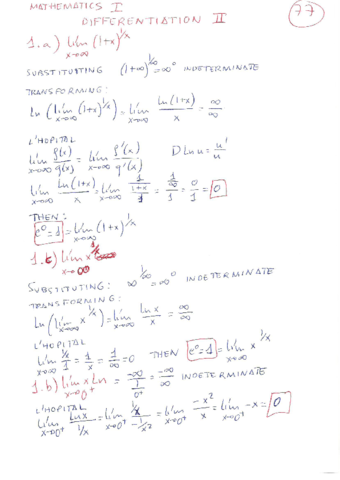 MATHEMATICS I
DIFFERENTIATION II
77
1.a) lim x→∞ (1+x)^1/x
SUBSTITUTING (1+∞)^1/∞ = ∞^0 INDETERMINATE
TRANSFORMING:
ln (lim x→∞ (1+x)^1/x) = lim x→∞ ln(1+x)/x = ∞/∞
L'HOPITAL
lim x→∞ f(x)/g(x) = lim x→∞ f'(x)/g'(x) D Ln u = u'/u
lim x→∞ ln(1+x)/x = lim x→∞ (1/(1+x))/1 = (1/∞)/1 = 0/1 = 0
THEN:
e^0 = 1 = lim x→∞ (1+x)^1/x
1.c) lim x→∞ x^1/x
SUBSTITUTING: ∞^1/∞ = ∞^0 INDETERMINATE
TRANSFORMING:
Ln (lim x→∞ x^1/x) = lim x→∞ lnx/x = ∞/∞
L'HOPITAL
lim x→∞ (1/x)/1 = 1/x = 1/∞ = 0 THEN e^0 = 1 = lim x→∞ x^1/x
1.b) lim x→0+ x Ln = -∞/(1/0+) = -∞/∞ INDETERMINATE
L'HOPITAL
lim x→0+ Lnx/(1/x) = lim x→0+ (1/x)/(-1/x²) = lim x→0+ -x²/x = lim x→0+ -x = 0